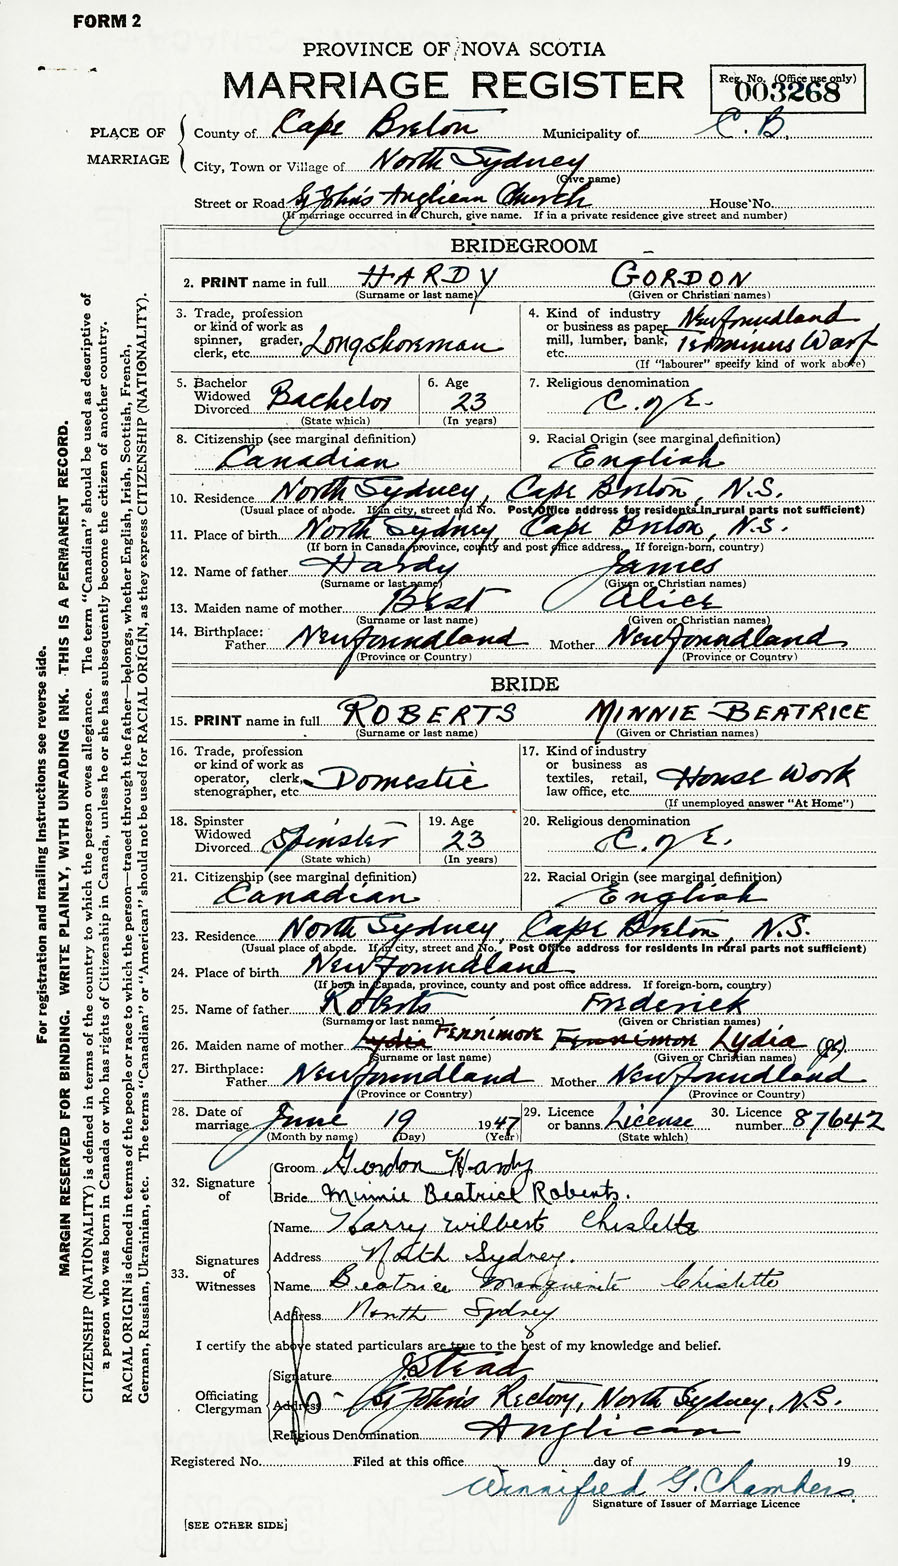 FORM 2
PROVINCE OF NOVA SCOTIA
MARRIAGE REGISTER
Reg. No. (Office use only)
003268
PLACE OF MARRIAGE
County of Cape Breton Municipality of C. B.
City, Town or Village of North Sydney
(Give name)
Street or Road St John's Anglican Church House No.
(If marriage occurred in a Church, give name. If in a private residence give street and number)
BRIDEGROOM
2. PRINT name in full HARDY GORDON
(Surname or last name) (Given or Christian names)
3. Trade, profession or kind of work as spinner, grader, clerk, etc. Longshoreman
4. Kind of industry or business as paper mill, lumber, bank, etc. Newfoundland Terminus Warf
(If "labourer" specify kind of work above)
5. Bachelor Widowed Divorced Bachelor
(State which)
6. Age 23
(In years)
7. Religious denomination C. of E.
8. Citizenship (see marginal definition) Canadian
9. Racial Origin (see marginal definition) English
10. Residence North Sydney, Cape Breton, N.S.
(Usual place of abode. If in city, street and No. Post Office address for residents in rural parts not sufficient)
11. Place of birth North Sydney, Cape Breton, N.S.
(If born in Canada, province, county and post office address. If foreign-born, country)
12. Name of father Hardy James
(Surname or last name) (Given or Christian names)
13. Maiden name of mother Best Alice
(Surname or last name) (Given or Christian names)
14. Birthplace: Father Newfoundland Mother Newfoundland
(Province or Country) (Province or Country)
BRIDE
15. PRINT name in full ROBERTS MINNIE BEATRICE
(Surname or last name) (Given or Christian names)
16. Trade, profession or kind of work as operator, clerk, stenographer, etc. Domestic
17. Kind of industry or business as textiles, retail, law office, etc. House Work
(If unemployed answer "At Home")
18. Spinster Widowed Divorced Spinster
(State which)
19. Age 23
(In years)
20. Religious denomination C. of E.
21. Citizenship (see marginal definition) Canadian
22. Racial Origin (see marginal definition) English
23. Residence North Sydney, Cape Breton, N.S.
(Usual place of abode. If in city, street and No. Post Office address for residents in rural parts not sufficient)
24. Place of birth Newfoundland
(If born in Canada, province, county and post office address. If foreign-born, country)
25. Name of father Roberts Frederick
(Surname or last name) (Given or Christian names)
26. Maiden name of mother Lydia FENNIMORE Fennimore Lydia
(Surname or last name) (Given or Christian names)
27. Birthplace: Father Newfoundland Mother Newfoundland
(Province or Country) (Province or Country)
28. Date of marriage June 19 1947
(Month by name) (Day) (Year)
29. Licence or banns License
(State which)
30. Licence number 87642
32. Signature of
Groom Gordon Hardy
Bride Minnie Beatrice Roberts.
33. Signatures of Witnesses
Name Harry Wilbert Chislett
Address North Sydney.
Name Beatrice Marguerite Chislett
Address North Sydney
I certify the above stated particulars are true to the best of my knowledge and belief.
Officiating Clergyman
Signature J Stead
Address St John's Rectory, North Sydney, N.S.
Religious Denomination Anglican
Registered No. Filed at this office day of 19
Winnifred G. Chambers
Signature of Issuer of Marriage Licence
[SEE OTHER SIDE]
For registration and mailing instructions see reverse side.
MARGIN RESERVED FOR BINDING. WRITE PLAINLY, WITH UNFADING INK. THIS IS A PERMANENT RECORD.
CITIZENSHIP (NATIONALITY) is defined in terms of the country to which the person owes allegiance. The term "Canadian" should be used as descriptive of
a person who was born in Canada or who has rights of Citizenship in Canada, unless he or she has subsequently become the citizen of another country.
RACIAL ORIGIN is defined in terms of the people or race to which the person—traced through the father—belongs, whether English, Irish, Scottish, French,
German, Russian, Ukrainian, etc. The terms "Canadian" or "American" should not be used for RACIAL ORIGIN, as they express CITIZENSHIP (NATIONALITY).